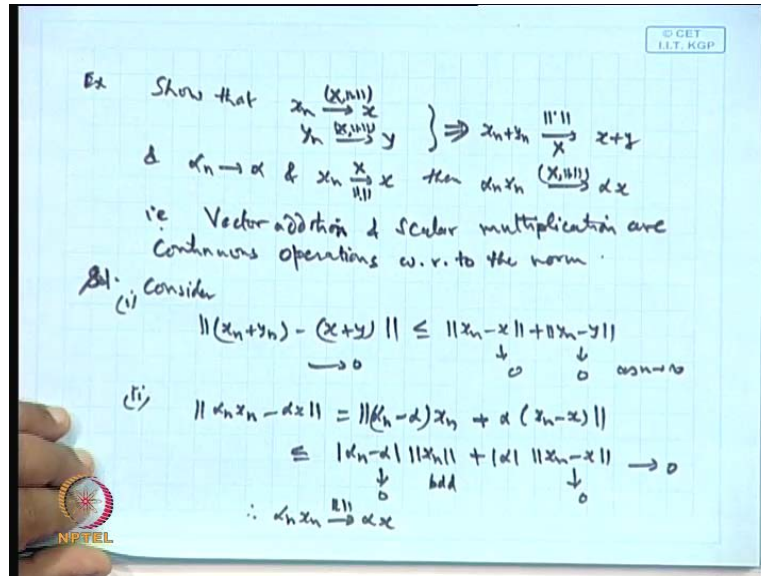 © CET
I.I.T. KGP
Ex Show that xₙ —(X,||·||)→ x
yₙ —(X,||·||)→ y } ⇒ xₙ+yₙ —||·||, X→ x+y
& αₙ → α & xₙ —X, ||·||→ x then αₙxₙ —(X,||·||)→ αx
i.e Vector addition & scalar multiplication are
Continuous operations w.r. to the norm.
Sol. Consider
(i) ||(xₙ+yₙ) - (x+y)|| ≤ ||xₙ-x|| + ||yₙ-y||
→ 0 ↓ 0 ↓ 0 as n→∞
(ii) ||αₙxₙ - αx|| = ||(αₙ-α)xₙ + α(xₙ-x)||
≤ |αₙ-α| ||xₙ|| + |α| ||xₙ-x|| → 0
↓ 0 bdd ↓ 0
∴ αₙxₙ —||·||→ αx
NPTEL